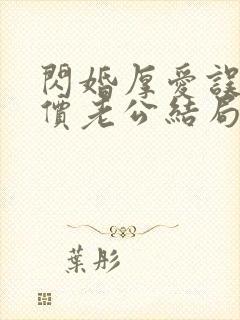 閃婚厚愛誤
價老公結局
葉彤